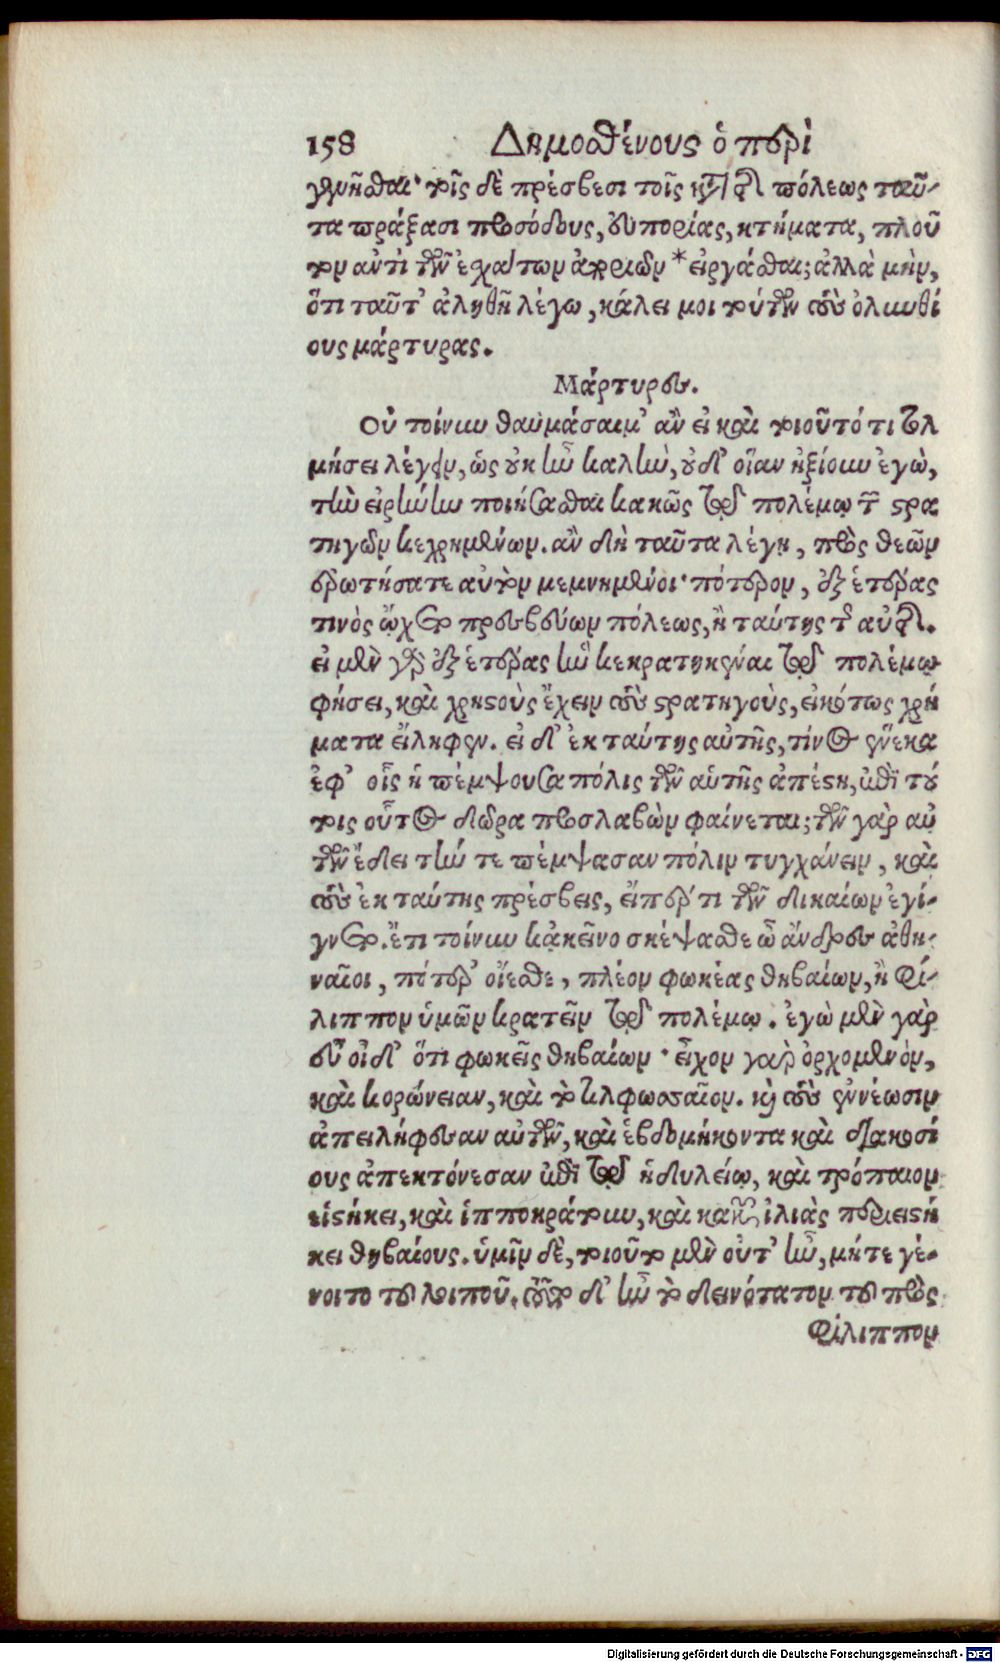 158 Δημοσθένους ὁ περὶ
γεγενῆσθαι· τοῖς δὲ πρέσβεσι τοῖς κατὰ τῆς πόλεως ταῦ-
τα πράξασι προσόδους, εὐπορίας, κτήματα, πλοῦ
τον ἀντὶ τῶν ἐσχάτων ἀποριῶν * εἰργάσθαι; ἀλλὰ μὴν,
ὅτι ταῦτ' ἀληθῆ λέγω, κάλει μοι τούτων τοὺς ὀλυνθί
ους μάρτυρας.
Μάρτυρες.
Οὐ τοίνυν θαυμάσαιμ' ἂν εἰ καὶ τοιοῦτό τι τολ
μήσει λέγειν, ὡς οὐκ ἦν καλὴν, οὐδ' οἵαν ἠξίουν ἐγὼ,
τὴν εἰρήνην ποιήσασθαι κακῶς τῷ πολέμῳ τῶν στρα
τηγῶν κεχρημένων. ἂν δὴ ταῦτα λέγῃ, πρὸς θεῶν
ἐρωτήσατε αὐτὸν μεμνημένοι· πότερον, ἐξ ἑτέρας
τινὸς ᾤχετο πρεσβεύων πόλεως, ἢ ταύτης τῆς αὐτῆς.
εἰ μὲν γὰρ ἐξ ἑτέρας ἣν κεκρατηκέναι τῷ πολέμῳ
φήσει, καὶ χρηστοὺς ἔχειν τοὺς στρατηγοὺς, εἰκότως χρή
ματα εἴληφεν. εἰ δ' ἐκ ταύτης αὐτῆς, τίνος ἕνεκα
ἐφ' οἷς ἡ πέμψουσα πόλις τῶν αὑτῆς ἀπέστη, ἐπὶ τού
τοις οὗτος δῶρα προσλαβὼν φαίνεται; τῶν γὰρ αὐ
τῶν ἔδει τήν τε πέμψασαν πόλιν τυγχάνειν, καὶ
τοὺς ἐκ ταύτης πρέσβεις, εἴπερ τι τῶν δικαίων ἐγί-
γνετο. ἔτι τοίνυν κἀκεῖνο σκέψασθε ὦ ἄνδρες ἀθη-
ναῖοι, πότερ' οἴεσθε, πλέον φωκέας θηβαίων, ἢ Φί-
λιππον ὑμῶν κρατεῖν τῷ πολέμῳ. ἐγὼ μὲν γὰρ
εὖ οἶδ' ὅτι φωκεῖς θηβαίων· εἶχον γὰρ ὀρχομενὸν,
καὶ κορώνειαν, καὶ τὸ τιλφωσσαῖον. καὶ τοὺς ἐν νέωσιν
ἀπειλήφεσαν αὐτῶν, καὶ ἑβδομήκοντα καὶ διακοσί
ους ἀπεκτόνεσαν ἐπὶ τῷ ἡδυλείῳ, καὶ τρόπαιον
εἱστήκει, καὶ ἱπποκράτουν, καὶ κακῶν ἰλιὰς περιειστή
κει θηβαίους. ὑμῖν δὲ, τοιοῦτο μὲν οὐτ' ἦν, μήτε γέ-
νοιτο τοῦ λοιποῦ. τοῦτο δ' ἦν τὸ δεινότατον τοῦ πρὸς
Φίλιππον
Digitalisierung gefördert durch die Deutsche Forschungsgemeinschaft - DFG